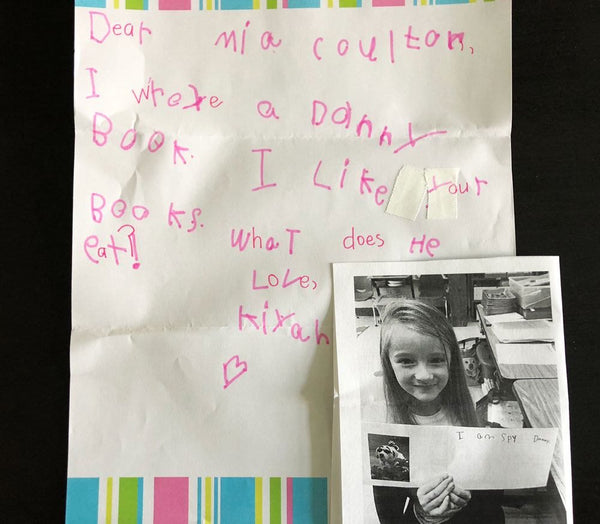 Dear Mia Coulton,
I wrote a Danny
Book. I Like your
Books. What does He
eat?
Love,
Kiyah
I am Spy Danny